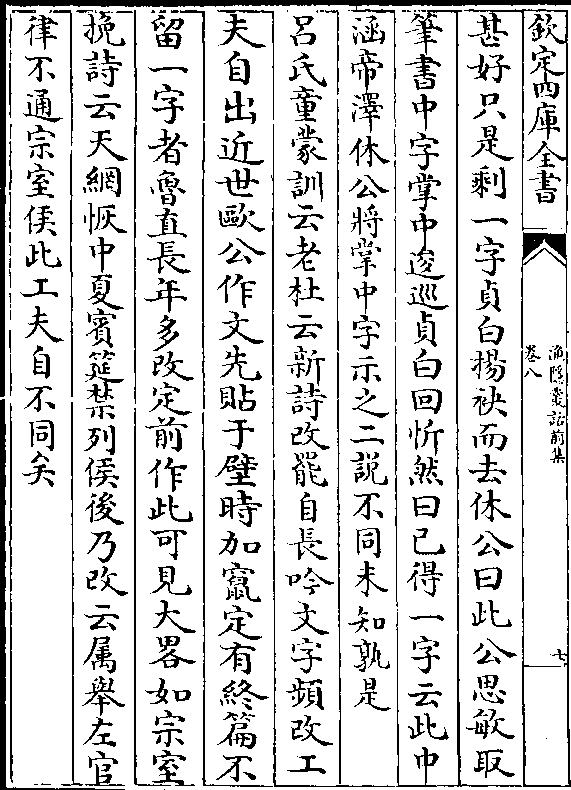 欽定四庫全書
漁隱叢話前集
卷八
七
甚好只是剩一字貞白揚袂而去休公曰此公思敏取
筆書中字掌中逡巡貞白回忻然曰已得一字云此中
涵帝澤休公將掌中字示之二説不同未知孰是
呂氏童蒙訓云老杜云新詩改罷自長吟文字頻改工
夫自出近世歐公作文先貼于壁時加竄定有終篇不
留一字者魯直長年多改定前作此可見大畧如宗室
挽詩云天網恢中夏賓筵禁列侯後乃改云属舉左官
律不通宗室侯此工夫自不同矣